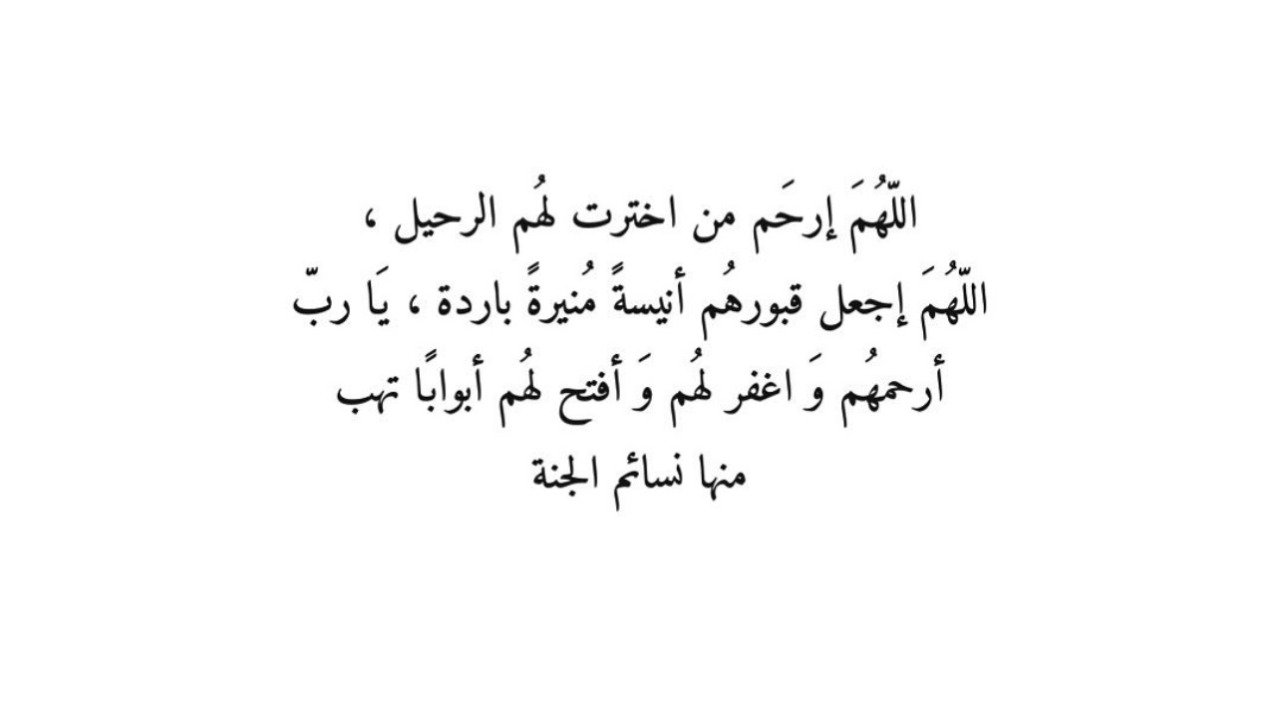 اللّهُمَ إرحَم من اخترت لهُم الرحيل ،
اللّهُمَ إجعل قبورهُم أنيسةً مُنيرةً باردة ، يَا ربّ
أرحمهُم وَ اغفر لهُم وَ أفتح لهُم أبوابًا تهب
منها نسائم الجنة